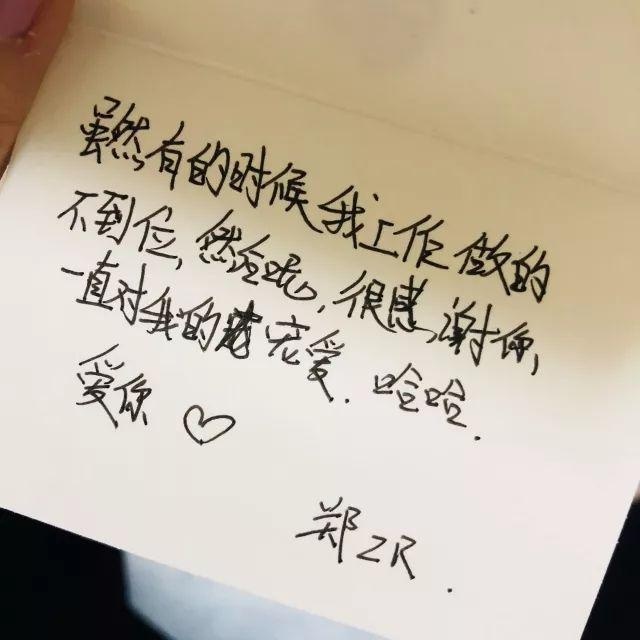 虽然有的时候我工作做的
不到位,然后呢,很感谢你,
一直对我的宠爱.哈哈.
爱你♡
郑ZR.